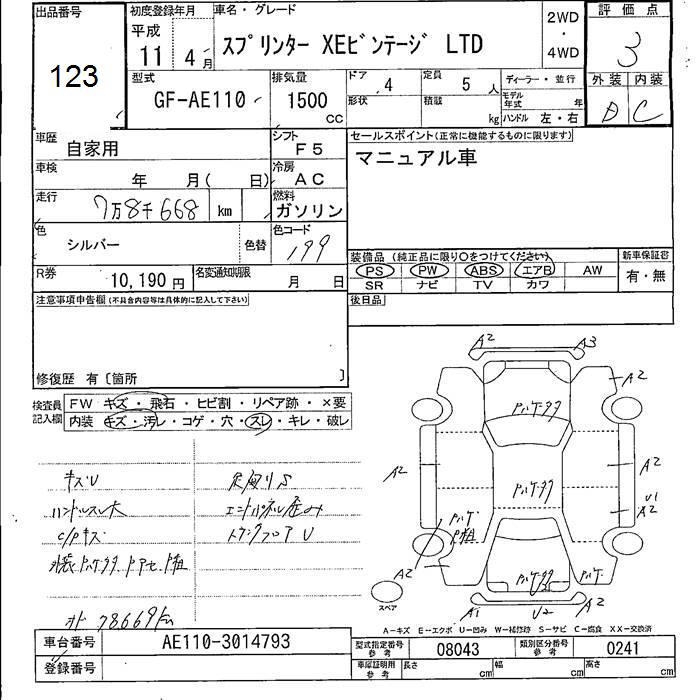 出品番号
123
初度登録年月
平成
11 4月
車名・グレード
スプリンター XEビンテージ LTD
2WD
・
4WD
評価点
3
外装 内装
D C
型式
GF-AE110
排気量
1500
CC
ドア 4
形状
定員 5 人
積載 kg
ディーラー・並行
モデル年式 年
ハンドル 左・右
車歴
自家用
シフト
F5
車検
年 月( 日)
冷房
AC
走行
7万8千668 km
燃料
ガソリン
色
シルバー
色替
色コード
199
R券
10,190円
名変通知期限
月 日
セールスポイント(正常に機能するものに限ります)
マニュアル車
装備品 (純正品に限り○をつけてください)
PS PW ABS エアB AW
SR ナビ TV カワ
新車保証書
有・無
後日品
注意事項申告欄(不具合内容等は具体的に記入して下さい)
修復歴 有〔箇所 〕
検査員記入欄
FW キズ・飛石・ヒビ割・リペア跡・×要
内装 キズ・汚レ・コゲ・穴・スレ・キレ・破レ
キズU
ハンドルスレ大
C/Pキズ
下廻りS
エンドパネル歪み
トランクフロアU
オド 78669km
A2 A3
A2
A2
A2
U1
A2
A2
A1 U2 A2
スペア
A-キズ E-エクボ U-凹み W-補修跡 S-サビ C-腐食 XX-交換済
車台番号
AE110-3014793
登録番号
型式指定番号
参考
08043
類別区分番号
参考
0241
車庫証明用
参考
長さ cm
幅 cm
高さ cm